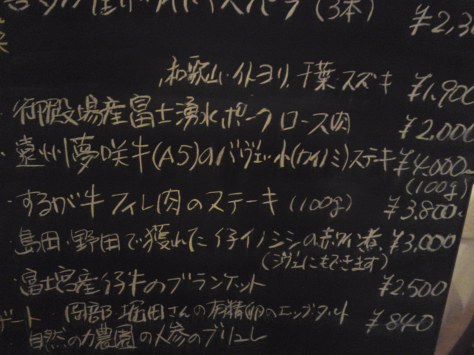 (3本) ¥2,3
菜
和歌山・イトヨリ、千葉・スズキ ¥1,900
・御殿場産富士湧水ポークロース肉 ¥2,000
・遠州夢咲牛(A5)のバヴェット(カイノミ)ステキ ¥4,000
(100g)
・するが牛フィレ肉のステーキ (100g) ¥3,800
・島田・野田で獲れた仔イノシシの赤ワイン煮 ¥3,000
(ジビエにもできます)
・富士宮産仔牛のブランケット ¥2,500
ート 岡部・堀田さんの有精卵のエッグタルト ¥840
自然の力農園の人参のブリュレ